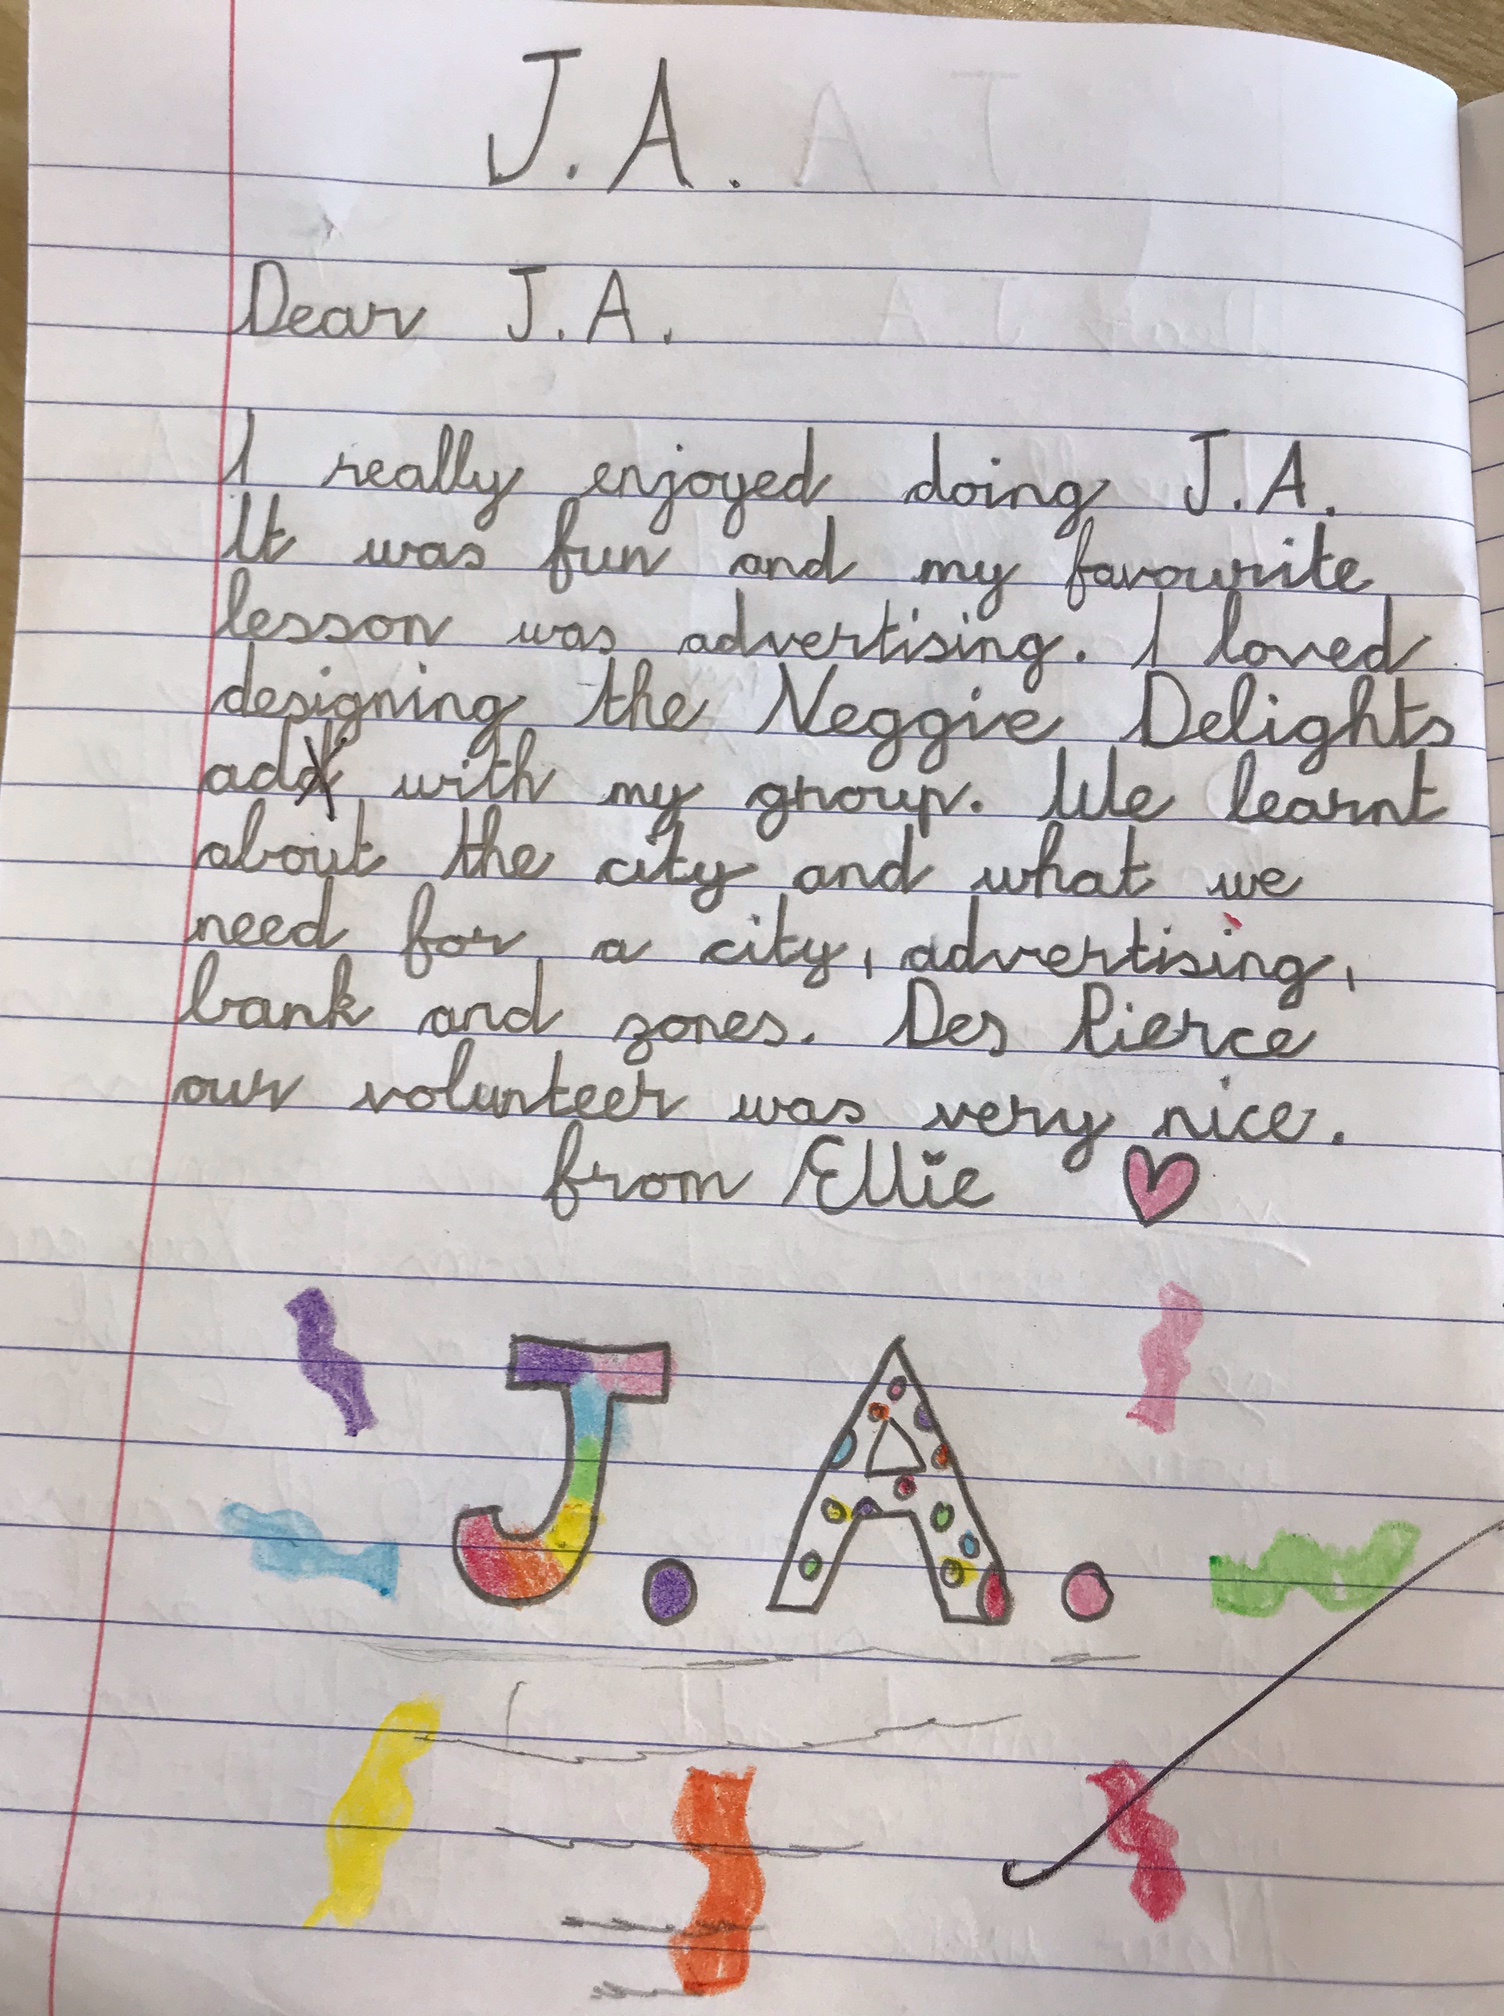 J.A.
Dear J.A.
I really enjoyed doing J.A.
It was fun and my favourite
lesson was advertising. I loved
designing the Neggie Delights
ad with my group. We learnt
about the city and what we
need for a city, advertising,
bank and zones. Des Pierce
our volunteer was very nice.
from Ellie
J.A.